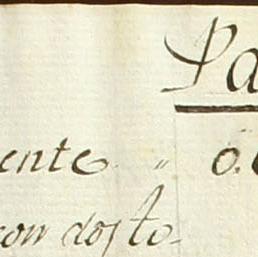 Pa
ente " 0.
con dosto